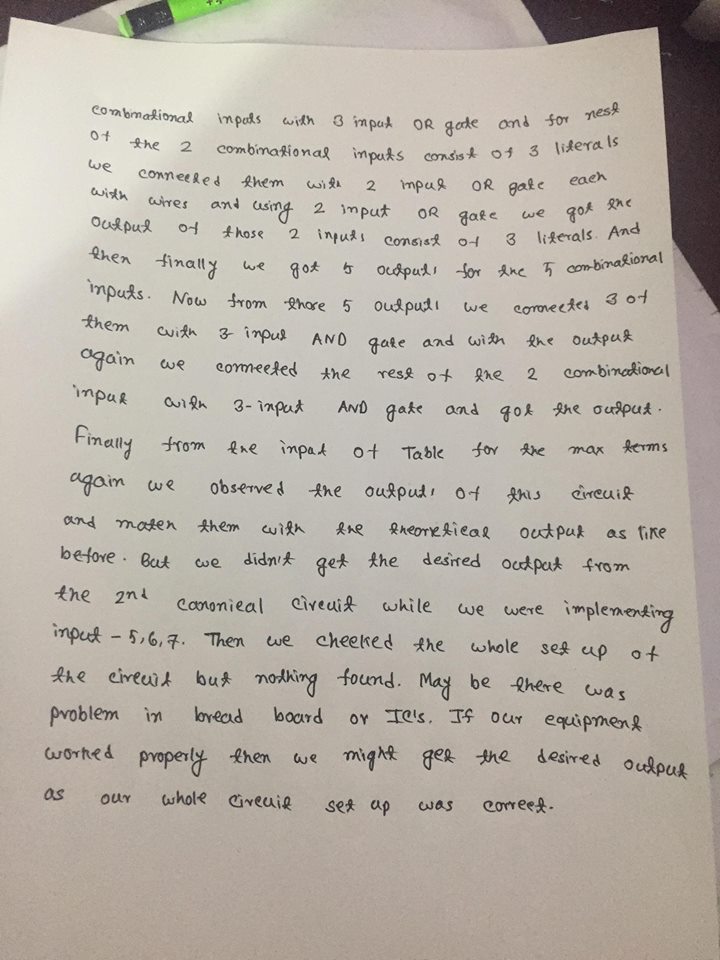 combinational inputs with 3 input OR gate and for rest
of the 2 combinational inputs consist of 3 literals
we connected them with 2 input OR gate each
with wires and using 2 input OR gate we got the
output of those 2 inputs consist of 3 literals. And
then finally we got 5 outputs for the 5 combinational
inputs. Now from those 5 outputs we connected 3 of
them with 3-input AND gate and with the output
again we connected the rest of the 2 combinational
input with 3-input AND gate and got the output.
Finally from the input of Table for the max terms
again we observed the outputs of this circuit
and match them with the theoretical output as like
before. But we didn't get the desired output from
the 2nd canonical circuit while we were implementing
input - 5,6,7. Then we checked the whole set up of
the circuit but nothing found. May be there was
problem in bread board or IC's. If our equipment
worked properly then we might get the desired output
as our whole circuit set up was correct.